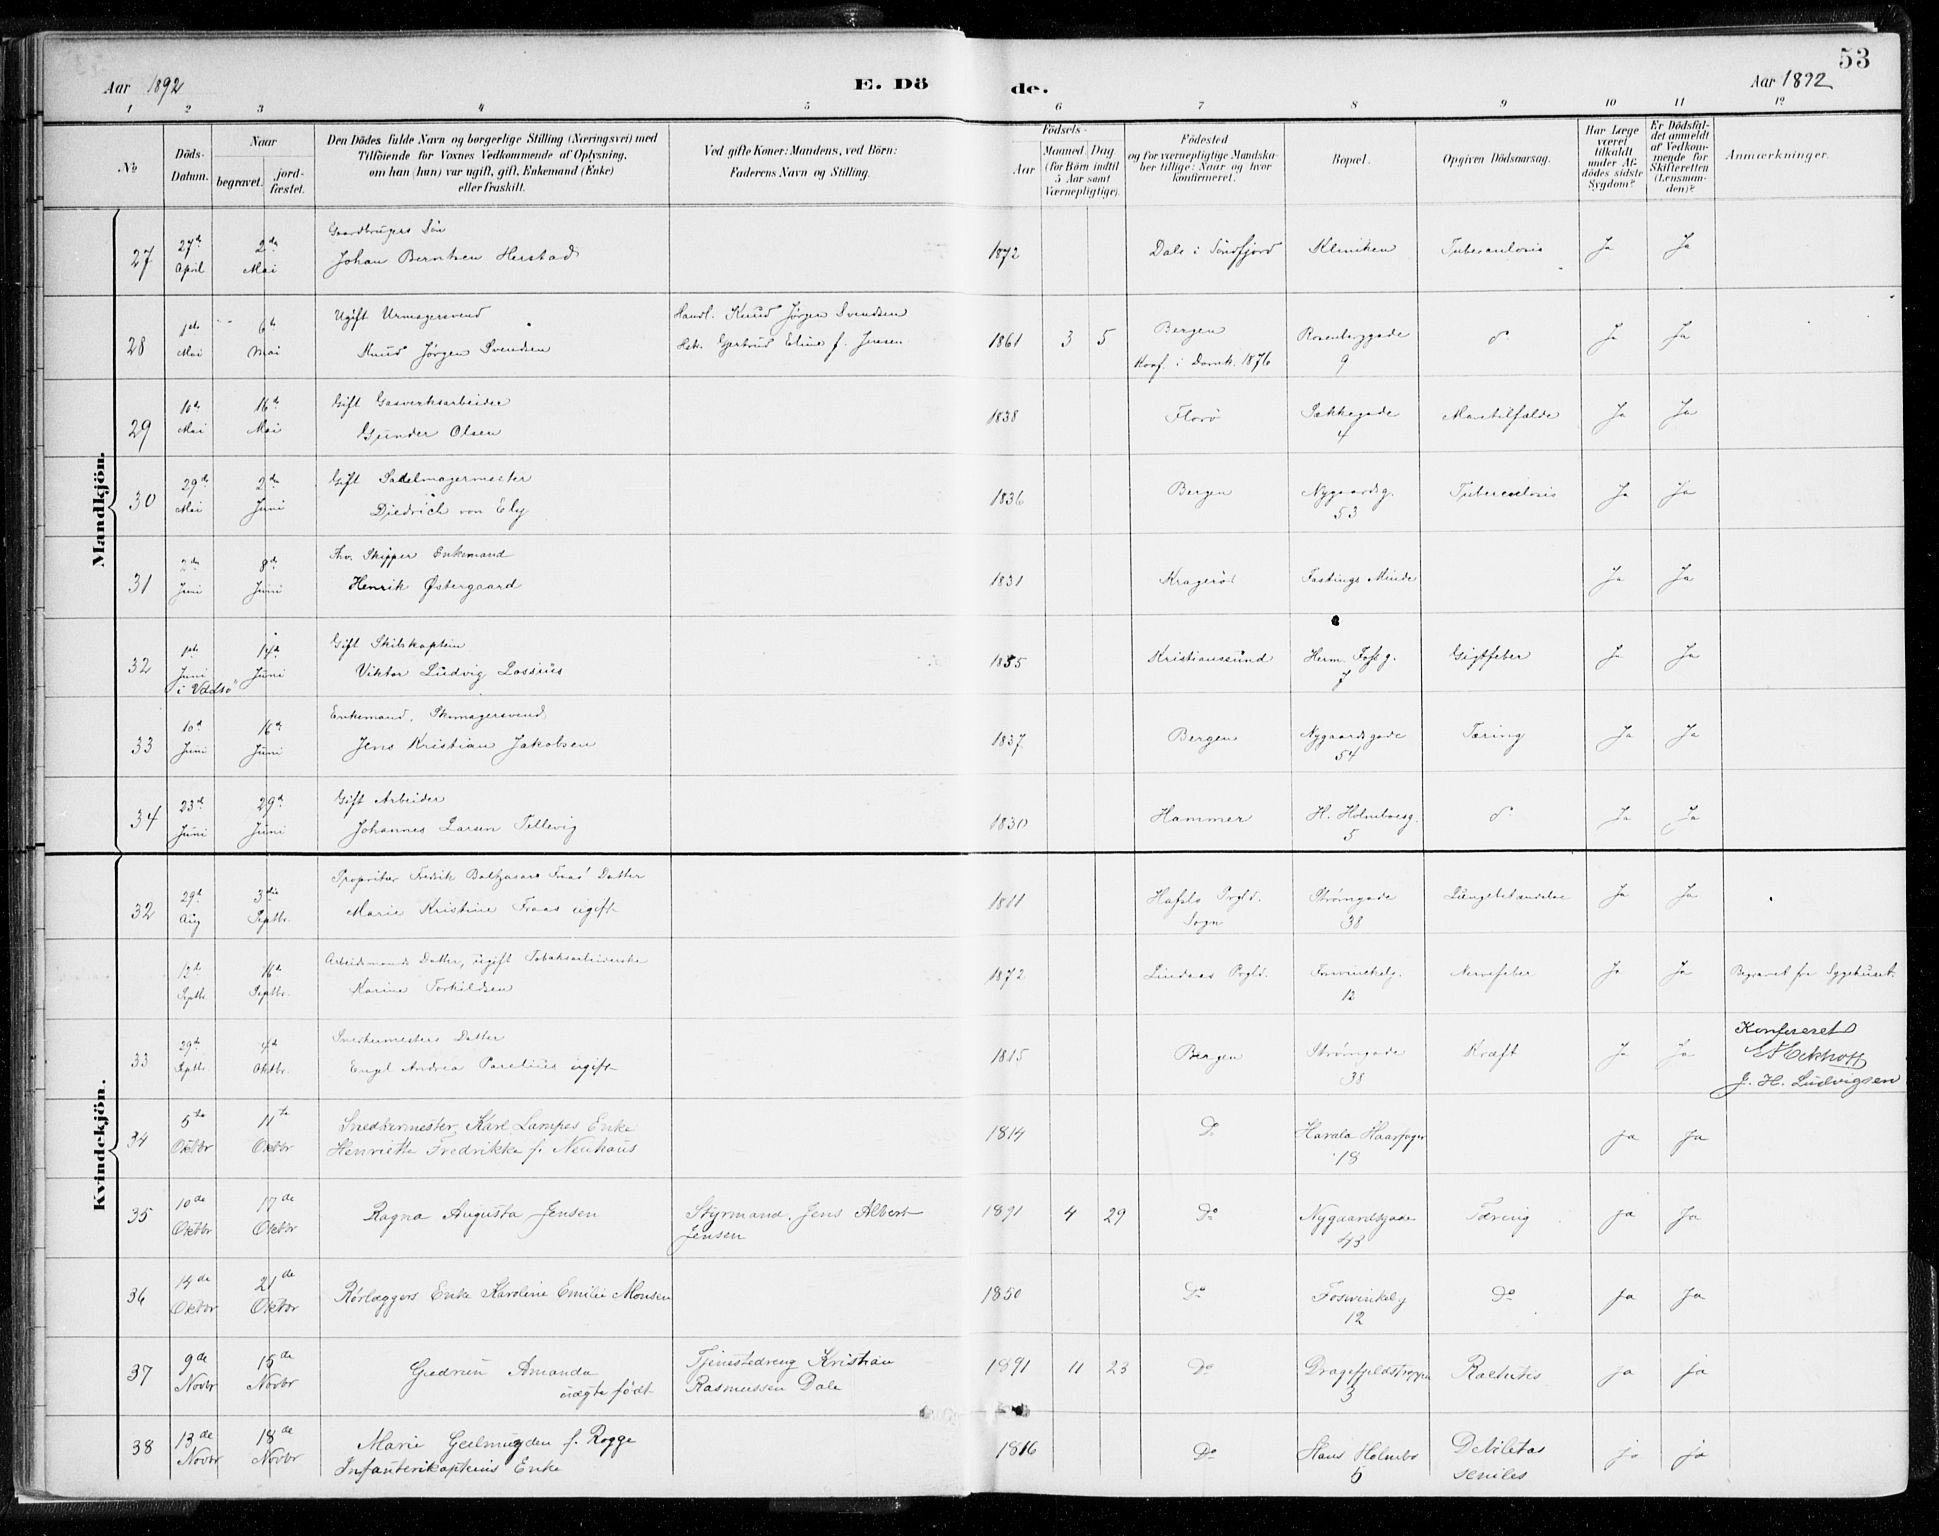 53
Aar 1892 E. Dö de. Aar 1892
1 2 3 4 5 6 7 8 9 10 11 12
No. Döds-Datum. Naar begravet. jordfæstet. Den Dödes fulde Navn og borgerlige Stilling (Næringsvei) med Tilföiende for Voxnes Vedkommende af Oplysning, om han (hun) var ugift, gift, Enkemand (Enke) eller fraskilt. Ved gifte Koner: Mandens, ved Börn: Faderens Navn og Stilling. Födsels- Aar Maaned Dag (for Börn indtil 5 Aar samt Værnepligtige). Födested og for værnepligtige Mandskaber tillige: Naar og hvor konfirmeret. Bopæl. Opgiven Dödsaarsag. Har Læge været tilkaldt under Afdödes sidste Sygdom? Er Dödsfaldet anmeldt af Vedkommende for Skifteretten (Lensmanden)? Anmærkninger.
Mandkjön.
27 27de April 2den Mai Gaardbrugers Søn
Johan Berntsen Herstad 1872 Dale i Søndfjord Kliniken Tuberculosis Ja Ja
28 1ste Mai 6te Mai Ugift Urmagersvend
Knud Jørgen Svendsen Handl. Knud Jørgen Svendsen
Hst. Gertrud Eline f. Jensen 1861 3 5 Bergen
Konf. i Domk. 1876 Rosenberggade
9 do Ja Ja
29 10de Mai 16de Mai Gift Gasverksarbeider
Gunder Olsen 1838 Florø Sækkegade
4 Mavetilfælde Ja Ja
30 29de Mai 2den Juni Gift Sadelmagermester
Diedrich von Ely 1836 Bergen Nygaardsg.
53 Tuberculosis Ja Ja
31 2den Juni 8de Juni Fhv. Skipper Enkemand
Henrik Østergaard 1831 Kragerø Fastings Minde Ja Ja
32 1ste Juni
i Vadsø 14de Juni Gift Skibskaptein
Viktor Ludvig Lossius 1835 Kristiansund Herm. Fossg.
7 Gigtfeber Ja Ja
33 10de Juni 16de Juni Enkemand, Skomagersvend
Jens Kristian Jakobsen 1837 Bergen Nygaardsgade
54 Tæring Ja Ja
34 23de Juni 29de Juni Gift Arbeider
Johannes Larsen Tellevig 1830 Hammer H. Holmboesg.
5 do Ja Ja
Kvindekjön.
32 29de Aug 3die Septbr. Propritær Fredrik Baltzasars Faas' Datter
Marie Kristine Faas ugift 1811 Hafslo Prgld.
Sogn Strømgade
38 Lungebetændelse Ja Ja
12te Septbr. 16de Septbr. Arbeidsmands Datter, ugift Tobaksarbeiderske
Karine Torkildsen 1872 Lindaas Prgld. Fosvinkelg.
12 Nervefeber Ja Ja Begravet fra Sygehuset.
33 29de Septbr. 4de Oktbr. Snedkermesters Datter
Engel Andrea Parelius ugift 1815 Bergen Strømgade
38 Kræft Ja Ja Konfereret
Eckhoff
J. H. Ludvigsen
34 5te Oktbr 11te Oktbr Snedkermester Karl Lampes Enke
Henriette Fredrikke f. Neuhaus 1814 Do Harald Haarfager
18 ja Ja
35 10de Oktbr 17de Oktbr Ragna Augusta Jensen Styrmand Jens Albert
Jensen 1891 4 29 Do Nygaardsgade
43 Tæring ja Ja
36 14de Oktbr 21de Oktbr Rørlæggers Enke Karoline Emilie Monsen 1850 Do Fosvinkelg
12 Do ja Ja
37 9de Novbr 15de Novbr Gudrun Amanda
uægte født Tjenstedreng Kristian
Rasmussen Dale 1891 11 23 Do Dragefjeldstrappe
3 Rachitis ja ja
38 13de Novbr 18de Novbr Marie Geelmuyden f. Rogge
Infanterikapteins Enke 1816 Do Hans Holmbo
5 Debilitas
seniles ja ja